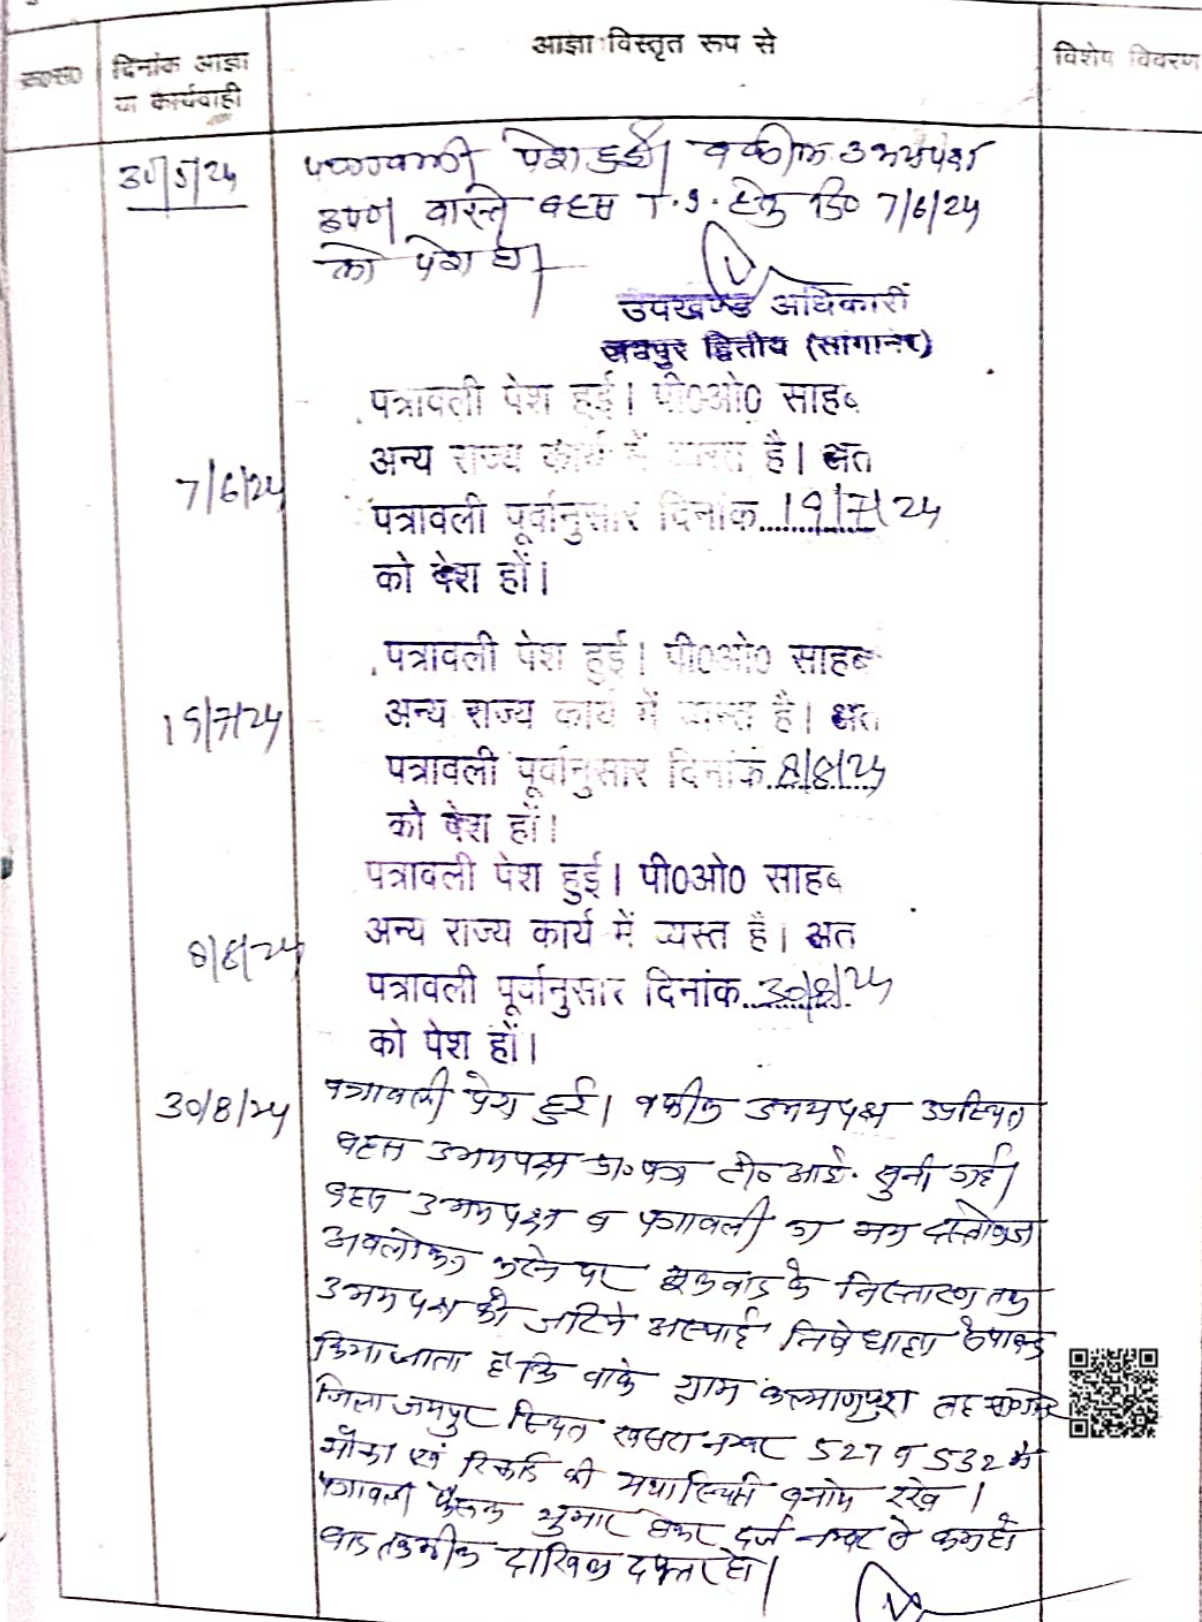 क्र०सं० दिनांक आज्ञा या कार्यवाही आज्ञा विस्तृत रूप से विशेष विवरण
30/5/24 पत्रावली पेश हुई। वकील उभयपक्ष
उप०। वास्ते बहस T.I. हेतु दि० 7/6/24
को पेश हो।
उपखण्ड अधिकारी
जयपुर द्वितीय (सांगानेर)
पत्रावली पेश हुई। पी०ओ० साहब
अन्य राज्य कार्य में व्यस्त है। अत
7/6/24 पत्रावली पूर्वानुसार दिनांक 19/7/24
को पेश हों।
पत्रावली पेश हुई। पी०ओ० साहब
19/7/24 अन्य राज्य कार्य में व्यस्त है। अत
पत्रावली पूर्वानुसार दिनांक 8/8/24
को पेश हों।
पत्रावली पेश हुई। पी०ओ० साहब
8/8/24 अन्य राज्य कार्य में व्यस्त है। अत
पत्रावली पूर्वानुसार दिनांक 30/8/24
को पेश हों।
30/8/24 पत्रावली पेश हुई। वकील उभयपक्ष उपस्थित
बहस उभयपक्ष प्रा० पत्र टी० आई. सुनी गई।
बहस उभयपक्ष व पत्रावली का मय दस्तावेज
अवलोकन करने पर मूलवाद के निस्तारण तक
उभयपक्ष को जरिये अस्थाई निषेधाज्ञा से पाबन्द
किया जाता है कि वाके ग्राम कल्याणपुरा तह सांगानेर
जिला जयपुर स्थित खसरा नम्बर 527 व 532 के
मौका एवं रिकार्ड की यथास्थिति बनाये रखे।
पत्रावली फैसल शुमार होकर दर्ज नम्बर से कम हो
बाद तकमील दाखिल दफ्तर हो।